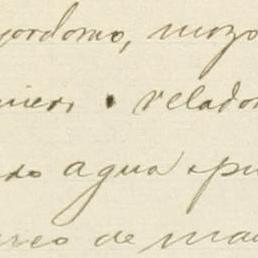 yordomo, mozo
nieros velador
ndo agua spu
arco de ma